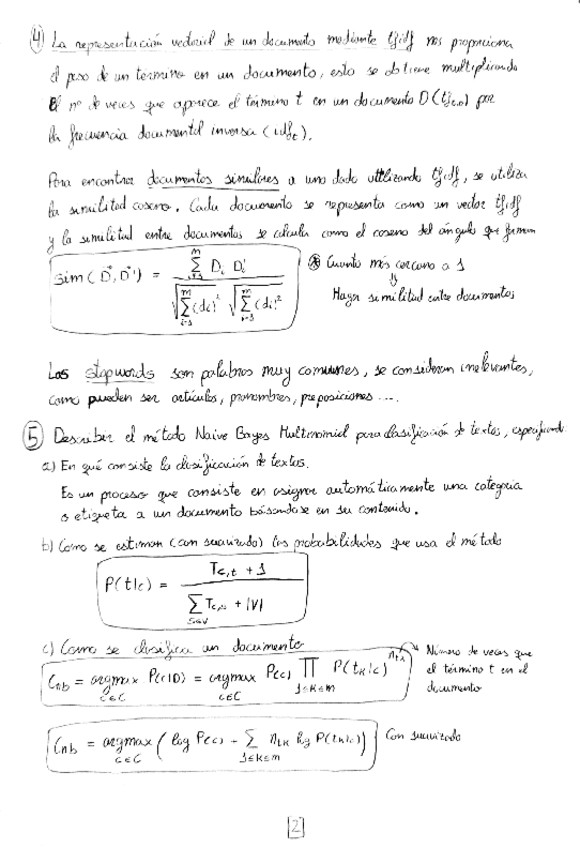 ④ La representación vectorial de un documento mediante tf·idf nos proporciona
el peso de un término en un documento, esto se obtiene multiplicando
El nº de veces que aparece el término t en un documento D (tf_{t,D}) por
la frecuencia documental inversa (idf_t).
Para encontrar documentos similares a uno dado utilizando tf·idf, se utiliza
la similitud coseno. Cada documento se representa como un vector tf·idf
y la similitud entre documentos se calcula como el coseno del ángulo que forman
sim(D⃗, D⃗') = \frac{\sum_{i=1}^{m} D_i D_i'}{\sqrt{\sum_{i=1}^{m} (d_i)^2} \sqrt{\sum_{i=1}^{m} (d_i')^2}}
⊛ Cuanto más cercano a 1
⇓
Mayor similitud entre documentos
Las stopwords son palabras muy comunes, se consideran irrelevantes,
como pueden ser artículos, pronombres, preposiciones ....
⑤ Describir el método Naive Bayes Multinomial para clasificación de textos, especificando
a) En qué consiste la clasificación de textos.
Es un proceso que consiste en asignar automáticamente una categoría
o etiqueta a un documento basándose en su contenido.
b) Como se estiman (con suavizado) las probabilidades que usa el método
P(t|c) = \frac{T_{c,t} + 1}{\sum_{s∈V} T_{c,s} + |V|}
c) Como se clasifica un documento
C_{nb} = argmax_{c∈C} P(c|D) = argmax_{c∈C} P(c) ∏_{1≤k≤m} P(t_k|c)^{n_{tk}}
→ Número de veces que
el término t en el
documento
C_{nb} = argmax_{c∈C} (log P(c) - ∑_{1≤k≤m} n_{tk} log P(t_k|c))
Con suavizado
[2]